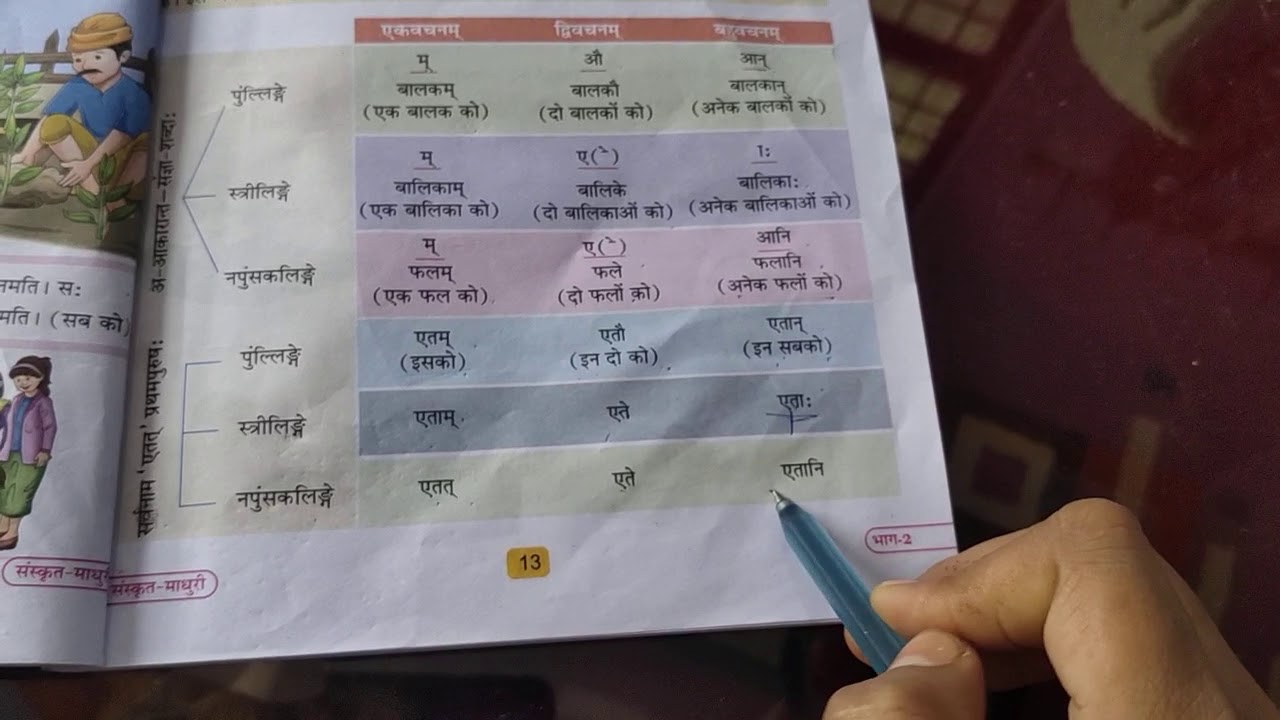 एकवचनम् द्विवचनम् बहुवचनम्
म् औ आन्
पुंल्लिङ्गे बालकम् बालकौ बालकान्
(एक बालक को) (दो बालकों को) (अनेक बालकों को)
म् ए(े) ाः
स्त्रीलिङ्गे बालिकाम् बालिके बालिकाः
(एक बालिका को) (दो बालिकाओं को) (अनेक बालिकाओं को)
म् ए(े) आनि
नपुंसकलिङ्गे फलम् फले फलानि
(एक फल को) (दो फलों को) (अनेक फलों को)
अ-आकारान्त-संज्ञा-शब्दाः
पुंल्लिङ्गे एतम् एतौ एतान्
(इसको) (इन दो को) (इन सबको)
स्त्रीलिङ्गे एताम् एते एताः
नपुंसकलिङ्गे एतत् एते एतानि
सर्वनाम 'एतत्' प्रथमपुरुषः
नमति। सः
मति। (सब को)
संस्कृत-माधुरी
संस्कृत-माधुरी
13
भाग-2